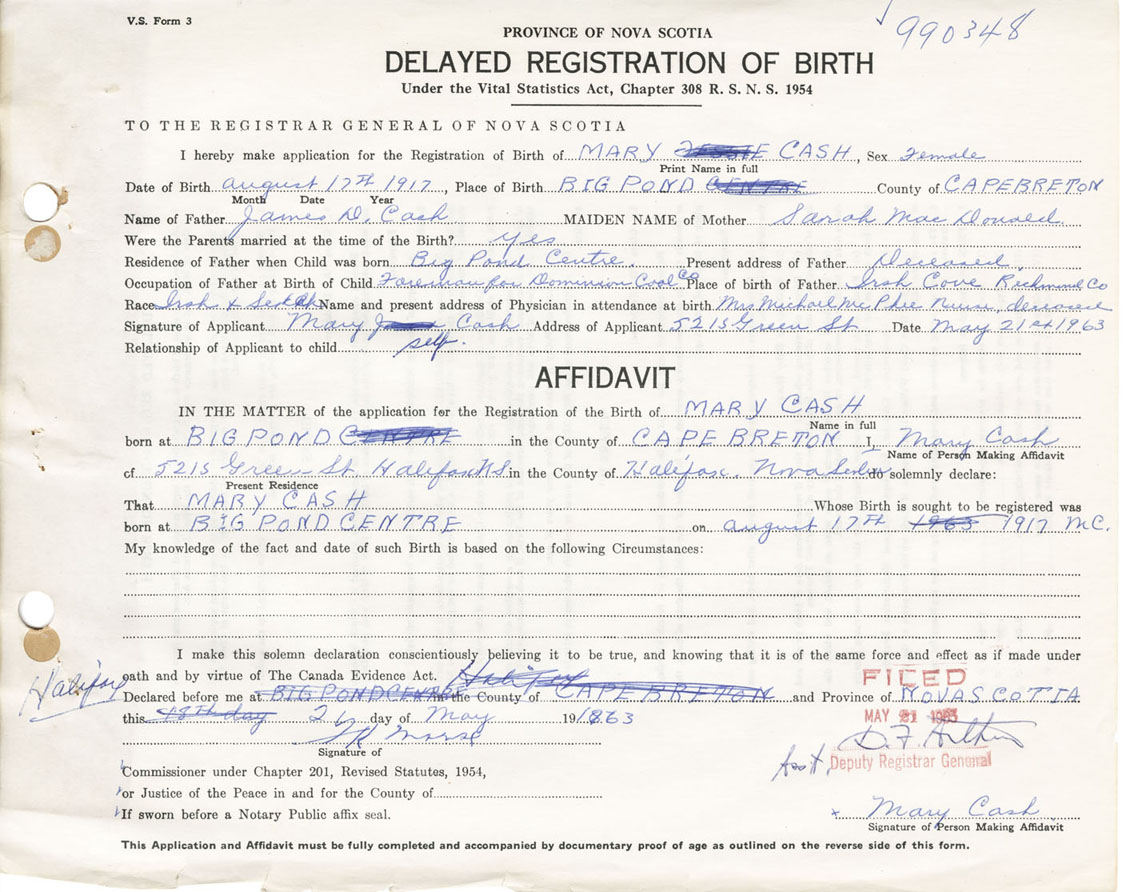 V.S. Form 3
990348
PROVINCE OF NOVA SCOTIA
DELAYED REGISTRATION OF BIRTH
Under the Vital Statistics Act, Chapter 308 R. S. N. S. 1954
TO THE REGISTRAR GENERAL OF NOVA SCOTIA
I hereby make application for the Registration of Birth of MARY JESSIE CASH, Sex Female
Print Name in full
Date of Birth August 17th 1917, Place of Birth BIG POND CENTRE County of CAPE BRETON
Month Date Year
Name of Father James D. Cash MAIDEN NAME of Mother Sarah Mac Donald
Were the Parents married at the time of the Birth? yes
Residence of Father when Child was born Big Pond Centre. Present address of Father Deceased
Occupation of Father at Birth of Child Foreman for Dominion Coal Co Place of birth of Father Irsh Cove Richmond Co
Race Irsh & Scotch Name and present address of Physician in attendance at birth Mrs Michael Mc Phee Nurse, deceased
Signature of Applicant Mary J Cash Address of Applicant 5215 Green St. Date May 21st 1963
Relationship of Applicant to child self.
AFFIDAVIT
IN THE MATTER of the application for the Registration of the Birth of MARY CASH
Name in full
born at BIG POND CENTRE in the County of CAPE BRETON I, Mary Cash
Name of Person Making Affidavit
of 5215 Green St. Halifax N.S in the County of Halifax. Nova Scotia do solemnly declare:
Present Residence
That MARY CASH Whose Birth is sought to be registered was
born at BIG POND CENTRE on August 17th 1963 1917 M.C.
My knowledge of the fact and date of such Birth is based on the following Circumstances:
I make this solemn declaration conscientiously believing it to be true, and knowing that it is of the same force and effect as if made under
oath and by virtue of The Canada Evidence Act. Halifax FILED
Halifax Declared before me at BIG POND CENTRE in the County of CAPE BRETON and Province of NOVA SCOTIA
this 18th day 21 day of May 19 1863 MAY 21 1963
Signature of
Asst. Deputy Registrar General
Commissioner under Chapter 201, Revised Statutes, 1954,
or Justice of the Peace in and for the County of
If sworn before a Notary Public affix seal. x Mary Cash
Signature of Person Making Affidavit
This Application and Affidavit must be fully completed and accompanied by documentary proof of age as outlined on the reverse side of this form.